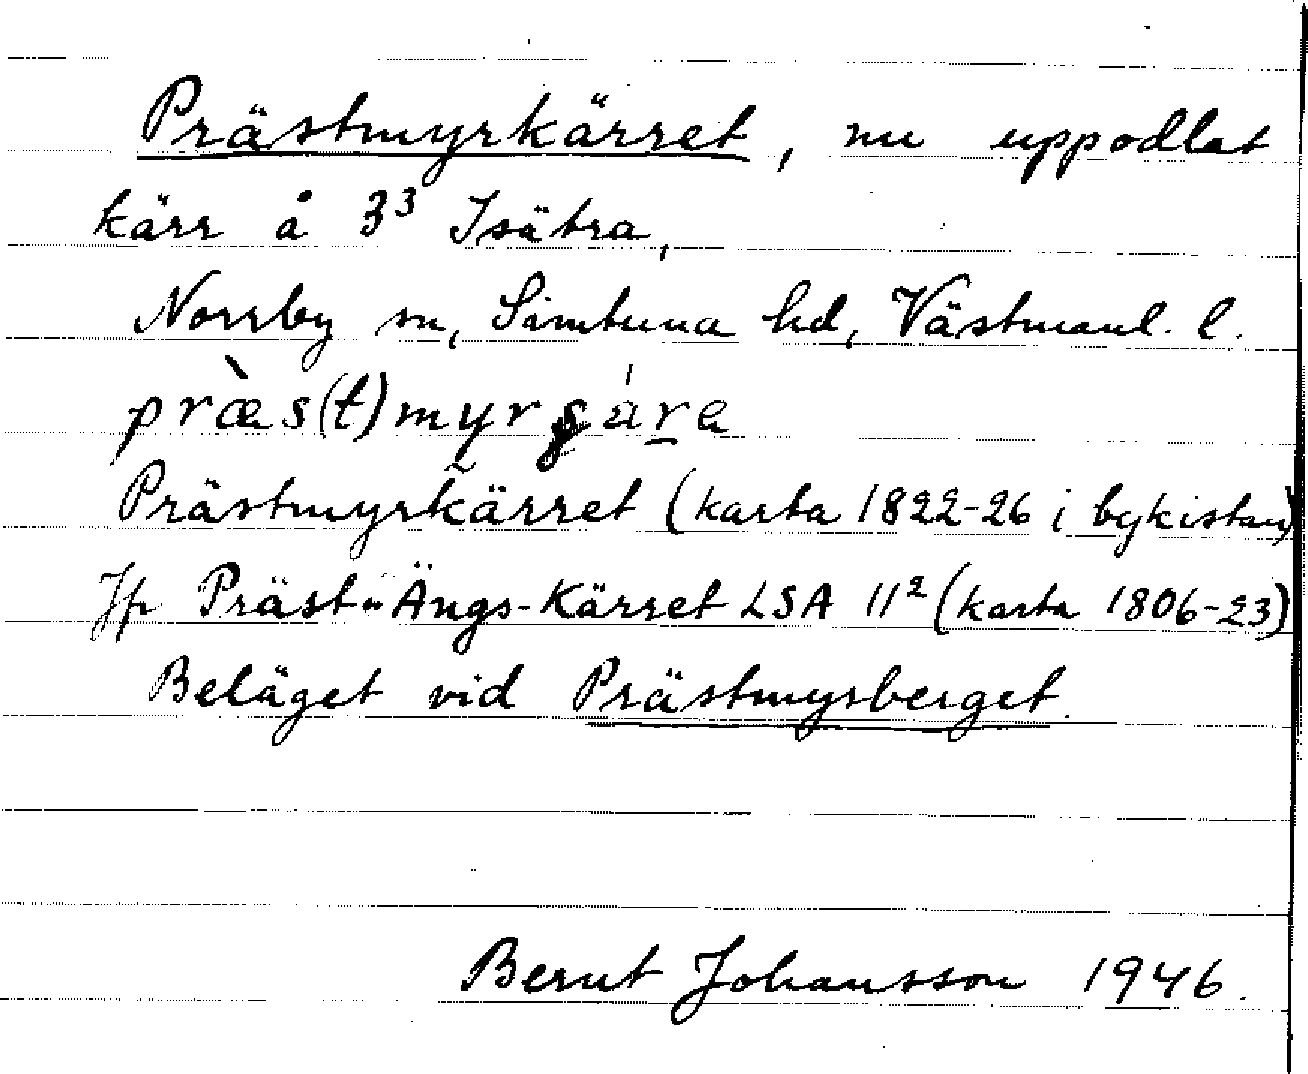 Prästmyrkärret, nu uppodlat
kärr å 3³ Isätra,
Norrby sn, Simtuna hd, Västmanl. l.
præ̀s(t)myrçä̀ra
Prästmyrkärret (karta 1822-26 i bykistan)
Jfr Präst-Ängs-Kärret LSA 11² (karta 1806-23)
Beläget vid Prästmyrberget.
Bernt Johansson 1946.